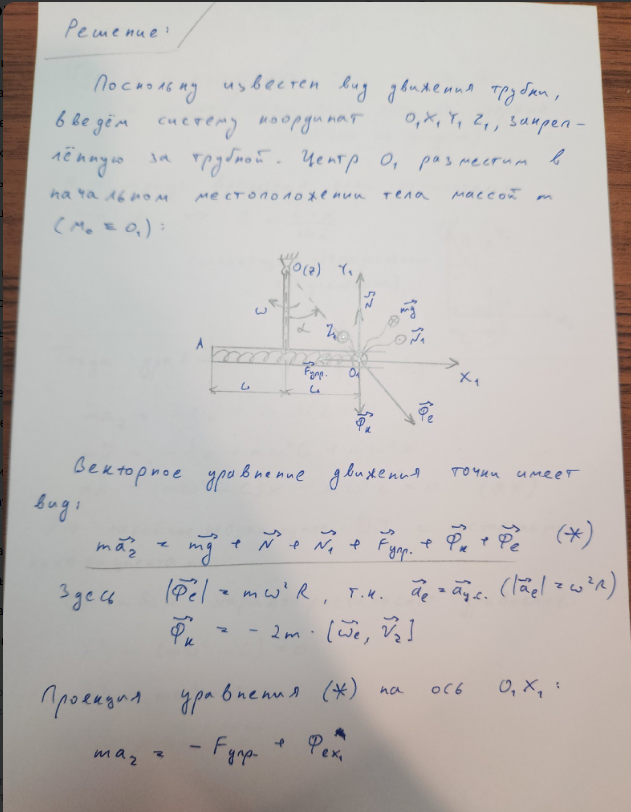 Решение:
Поскольку известен вид движения трубки,
введём систему координат O₁X₁Y₁Z₁, закреп-
лённую за трубкой. Центр O₁ разместим в
начальном местоположении тела массой m
(M₀ ≡ O₁):
O(Z) Y₁
N⃗
mg⃗
ω
α
Z₁
N⃗₁
A
F⃗упр.
O₁
X₁
L L
Φ⃗к
Φ⃗e
Векторное уравнение движения точки имеет
вид:
ma⃗₂ = mg⃗ + N⃗ + N⃗₁ + F⃗упр. + Φ⃗к + Φ⃗e (*)
Здесь |Φ⃗e| = mω²R, т.к. a⃗e = a⃗ц.с. (|a⃗e| = ω²R)
Φ⃗к = - 2m · [ω⃗e, V⃗₂]
Проекция уравнения (*) на ось O₁X₁:
ma₂ = - Fупр. + Φex₁